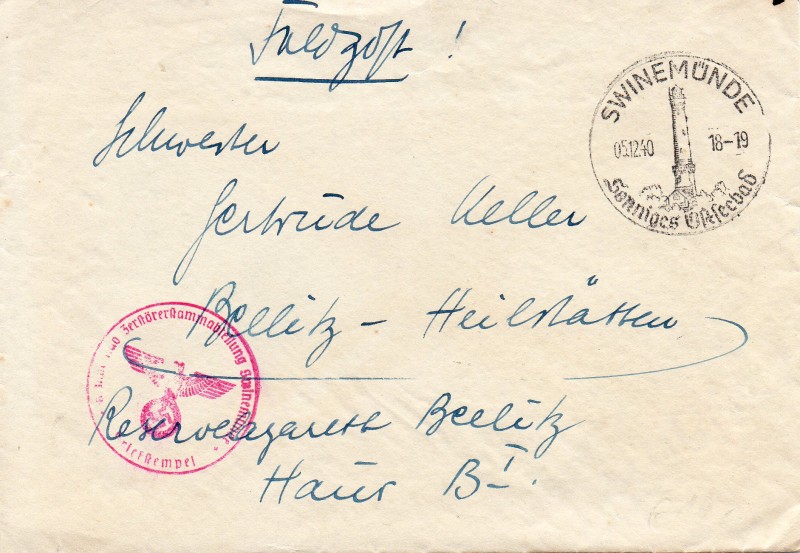 Feldpost!
SWINEMÜNDE
05.12.40 18-19
Sonniges Ostseebad
Schwester
Gertrude Keller
Beelitz - Heilstätten
Reservelazarett Beelitz
Haus B I.
und Zerstörerstammabteilung Swinemünde
Briefstempel